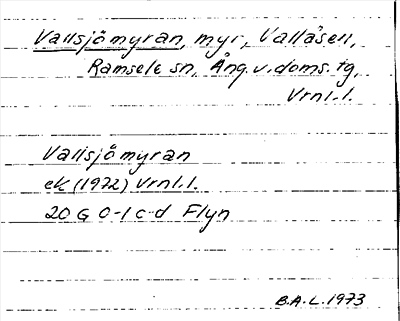 Vallsjömyran, myr, Vallåsen,
Ramsele sn, Ång. v. doms. tg,
Vrnl.l.
Vallsjömyran
ek (1972) Vrnl.l.
20 G 0-1 c-d Flyn
B.A.L. 1973